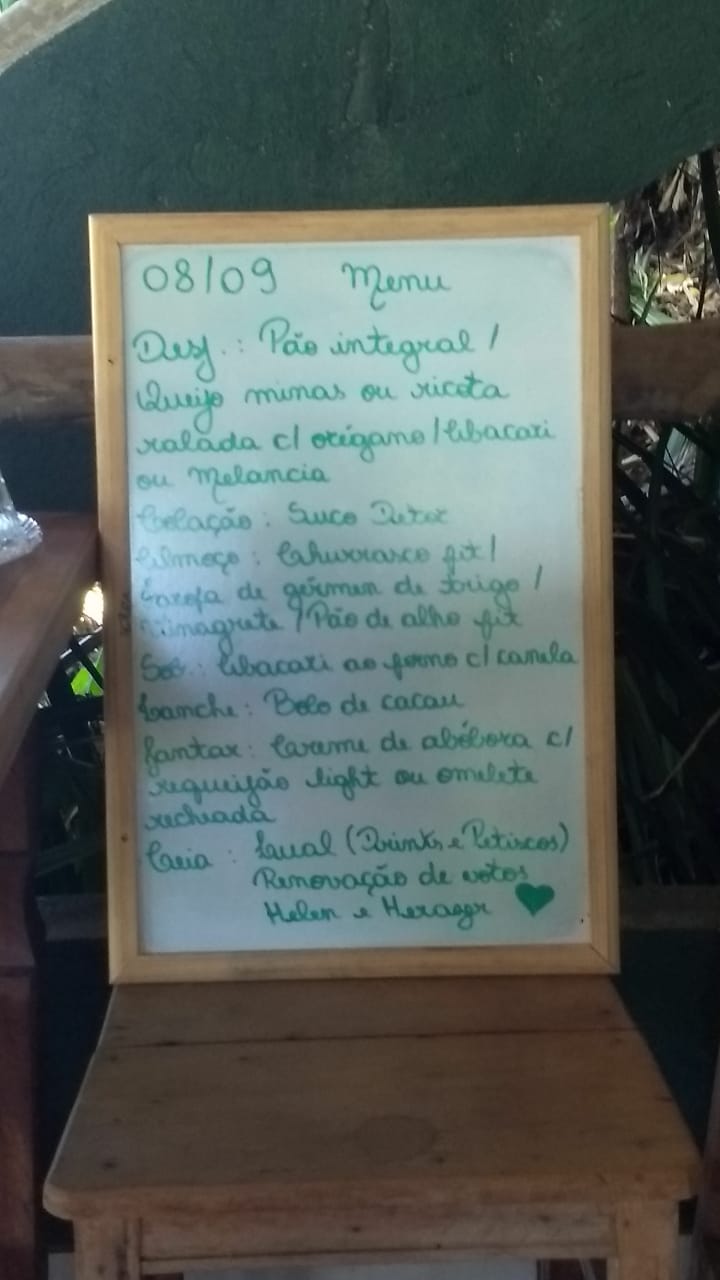 08/09 Menu
Desj.: Pão integral /
Queijo minas ou ricota
ralada c/ orégano / Abacaxi
ou Melancia
Colação: Suco Detox
Almoço: Churrasco fit /
Farofa de gérmen de trigo /
Vinagrete / Pão de alho fit
Sob.: Abacaxi ao forno c/ canela
Lanche: Bolo de cacau
Jantar: Creme de abóbora c/
requeijão light ou omelete
recheada
Ceia: Lual (Drinks e Petiscos)
Renovação de votos
Helen e